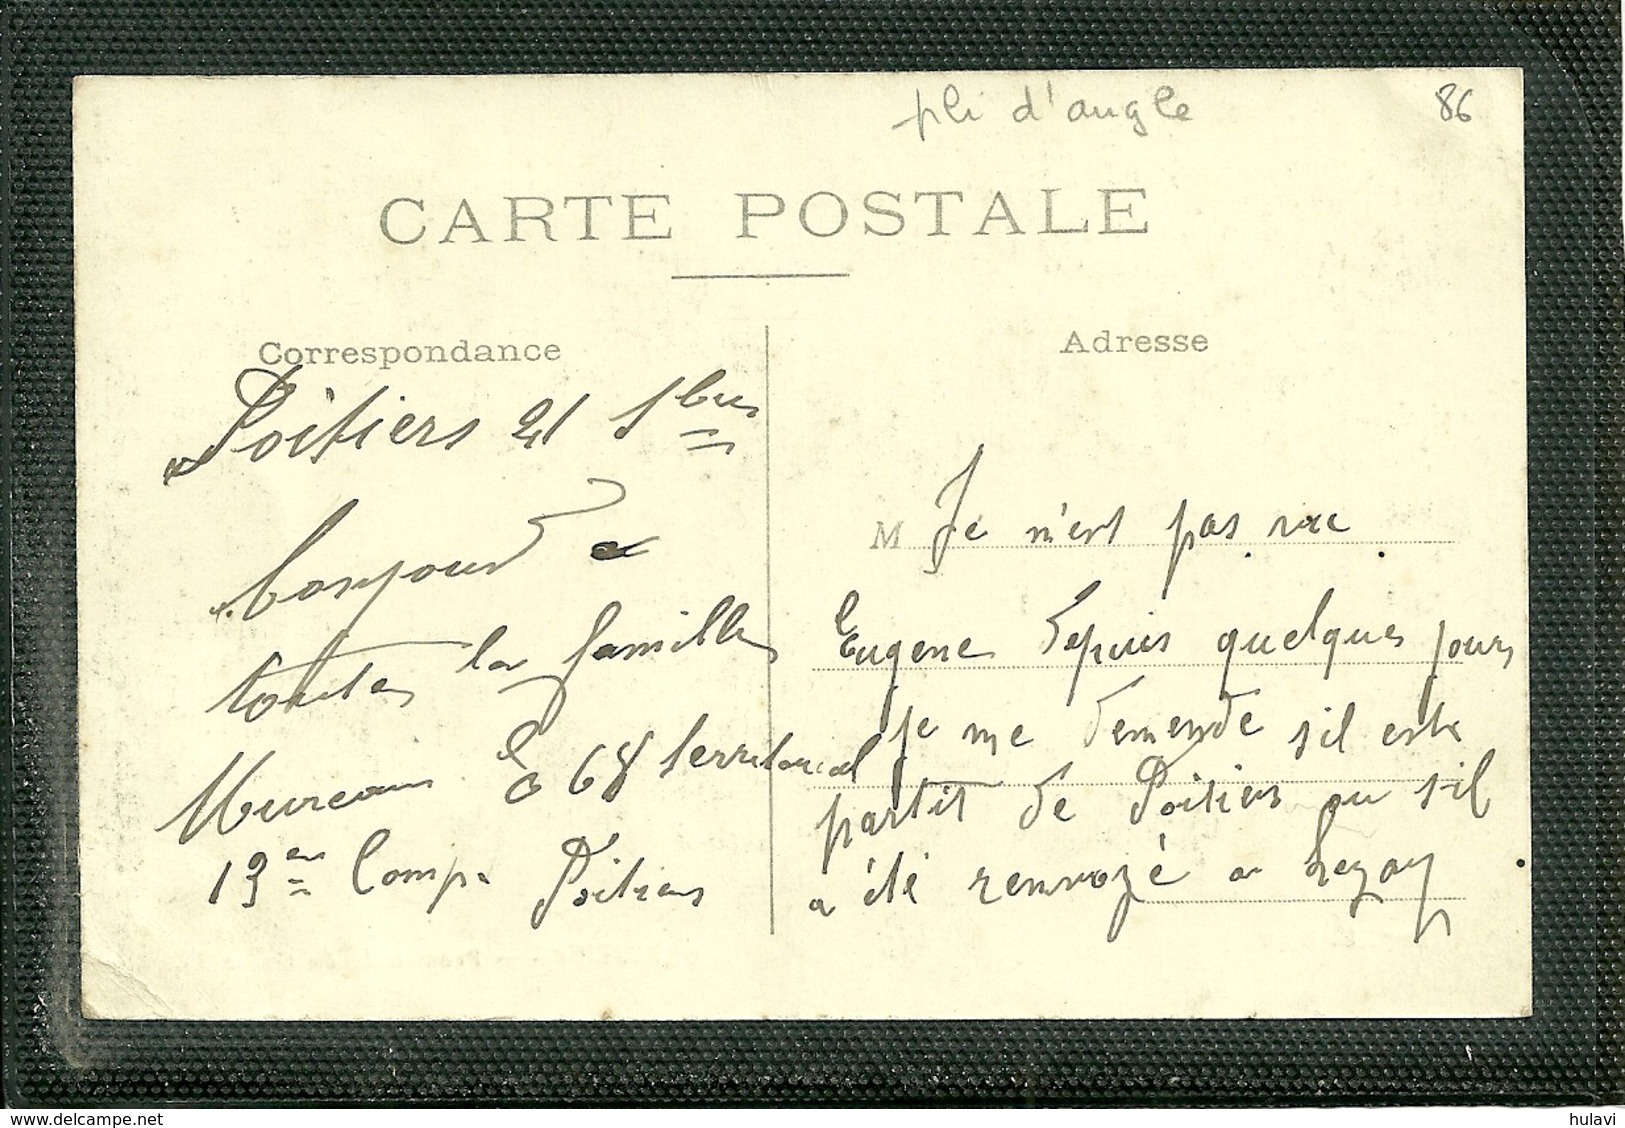 pli d'angle 86
CARTE POSTALE
Correspondance
Adresse
Poitiers 21
bonjour a
toutes la famille
Mureau E 68 territorial
13em Comp. Poitiers
M Je m'est pas vue
Eugene depuis quelques jours
je me demende s'il este
partit de Poitiers ou s'il
a été renvoyé a Lezay
www.delcampe.net
hulavi